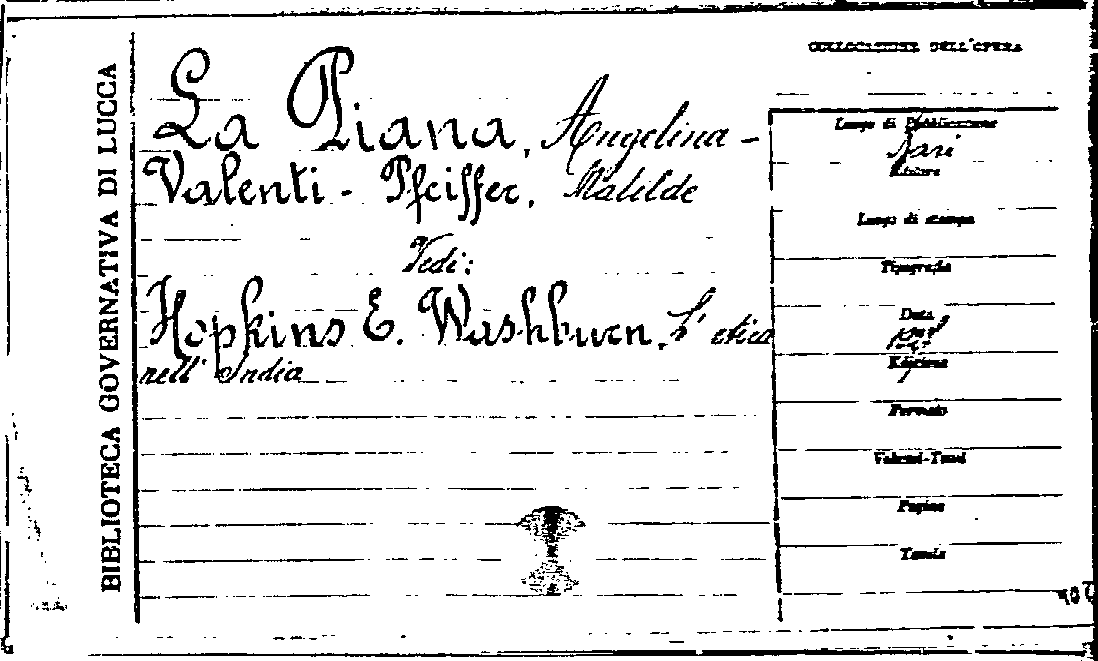 BIBLIOTECA GOVERNATIVA DI LUCCA
COLLOCAZIONE DELL'OPERA
La Piana, Angelina -
Valenti - Pfeiffer, Matilde
Vedi:
Hopkins E. Washburn, L' etica
nell' India
Luogo di Pubblicazione
Bari
Editore
Luogo di stampa
Tipografia
Data
Edizione
Formato
Volumi-Tomi
Pagine
Tavole